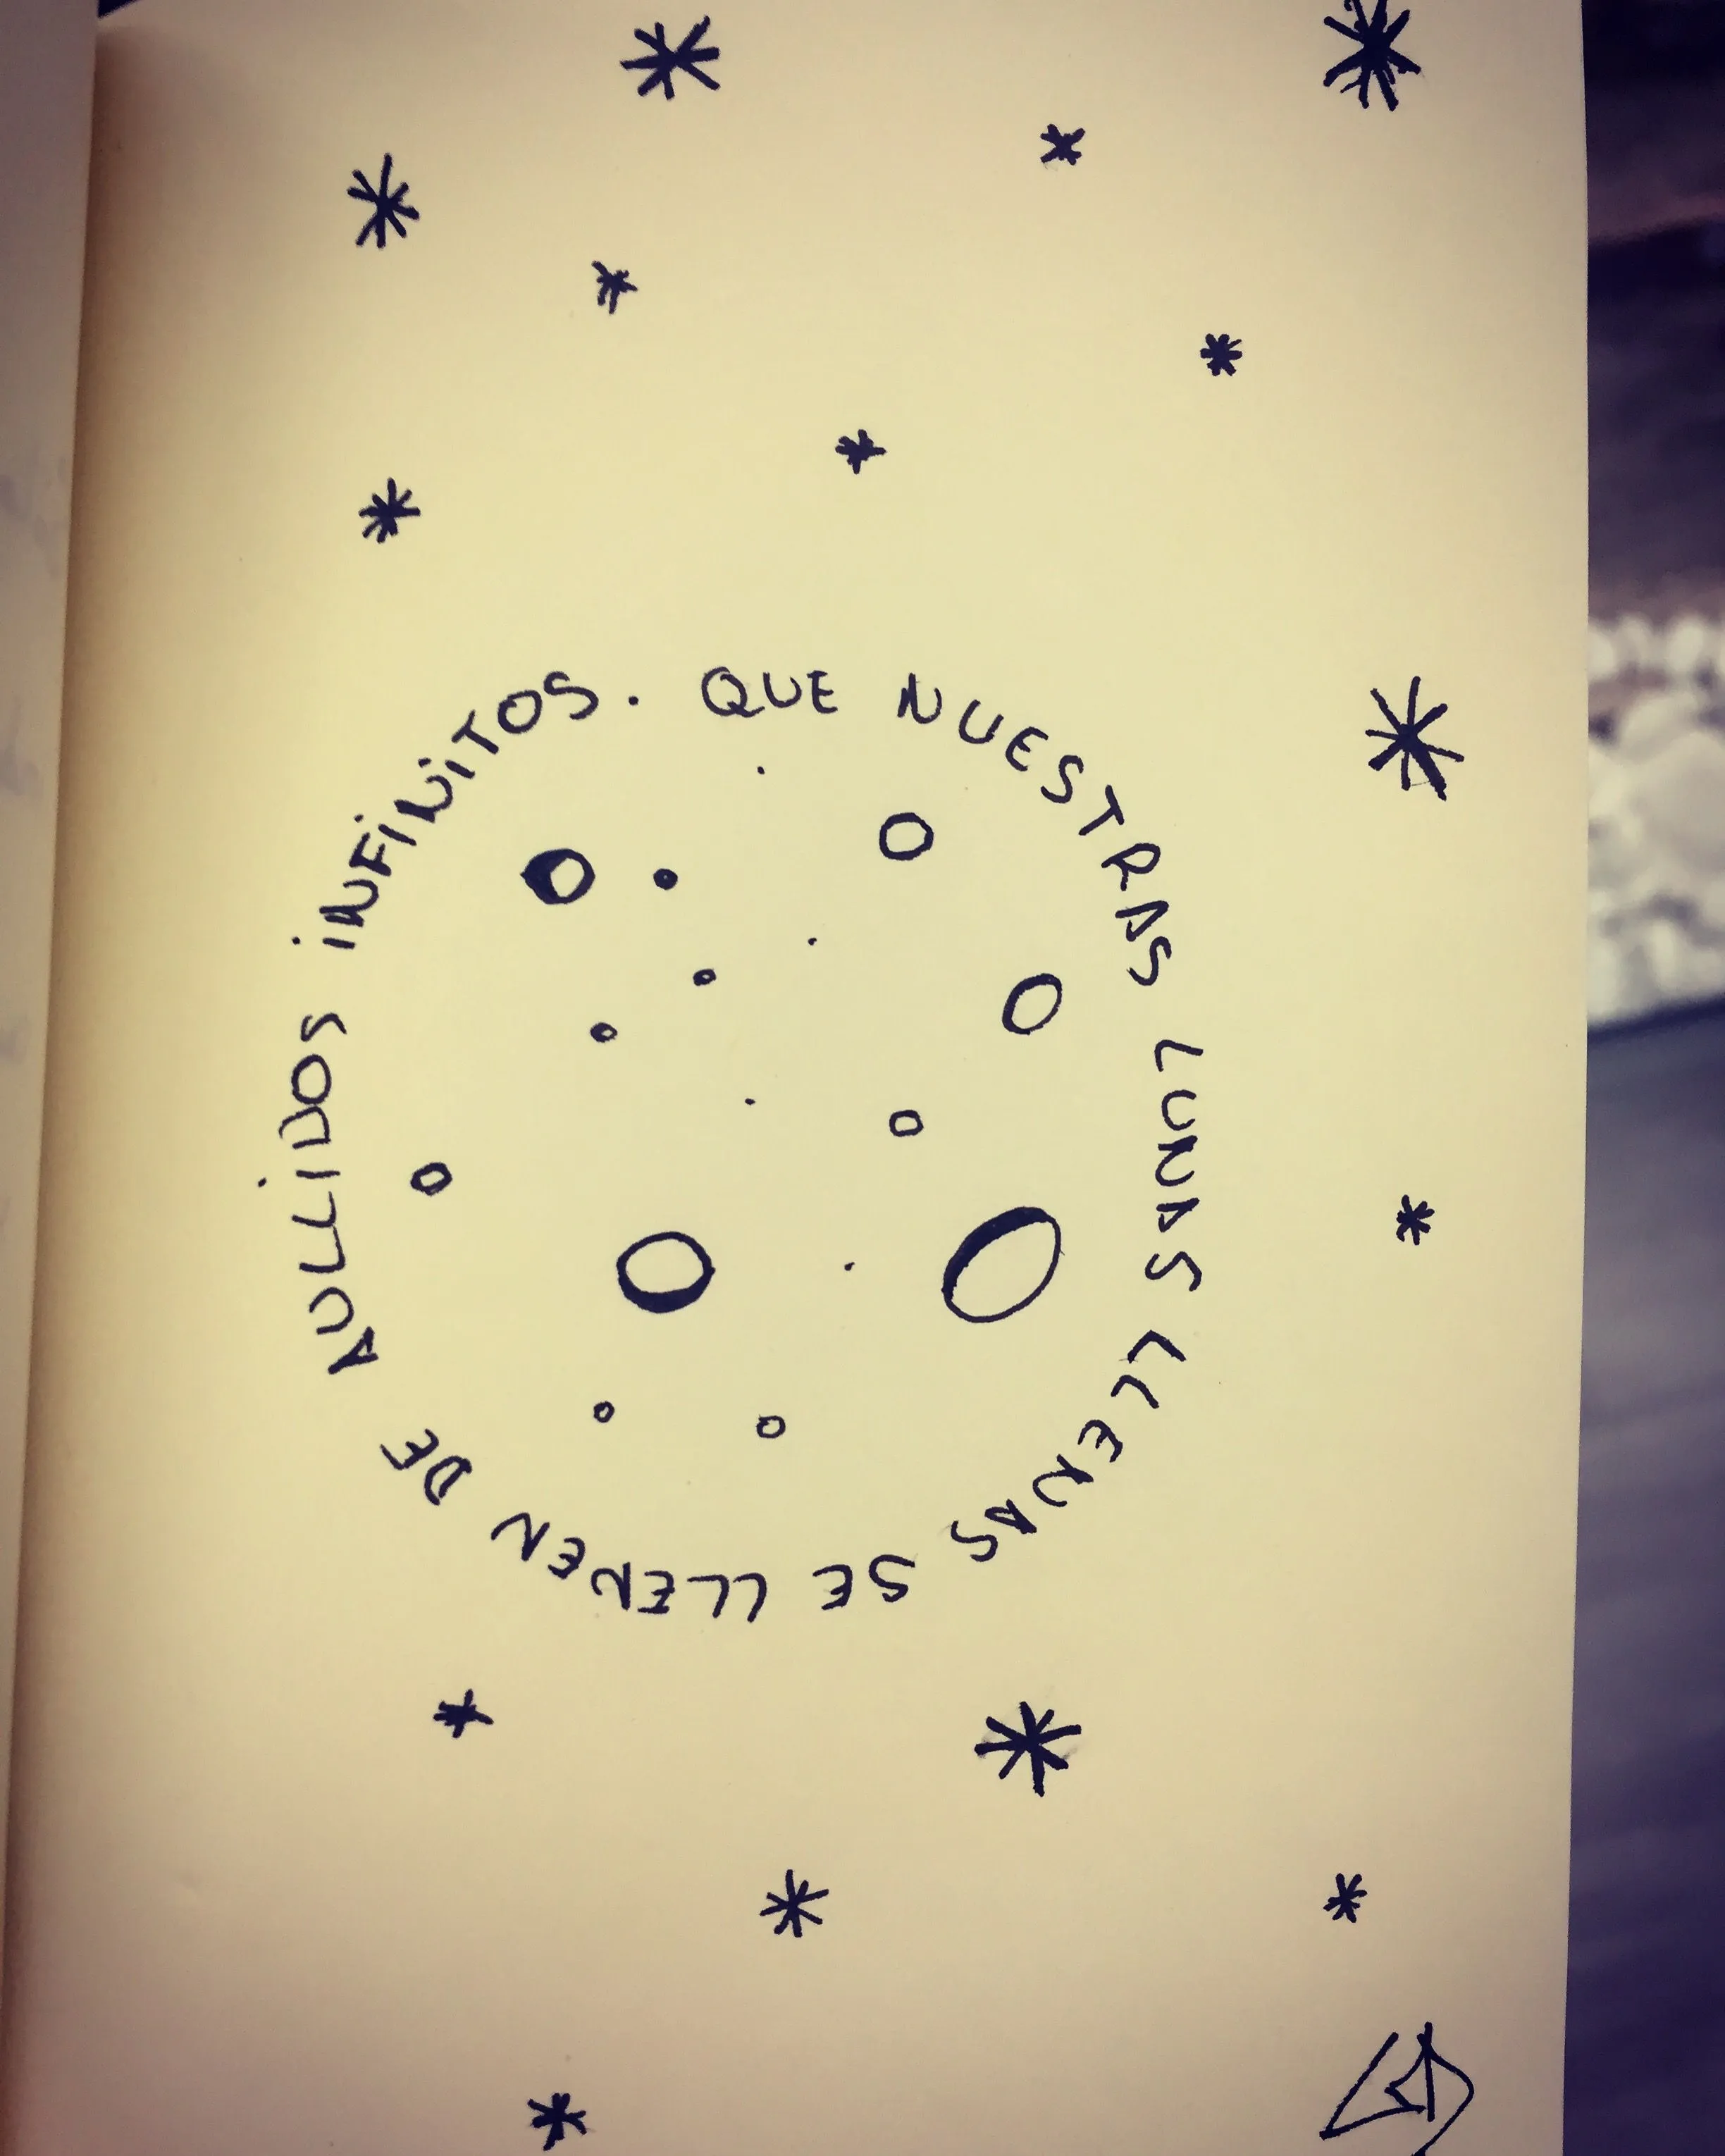 QUE NUESTRAS LUNAS LLENAS SE LLENEN DE AULLIDOS INFINITOS.